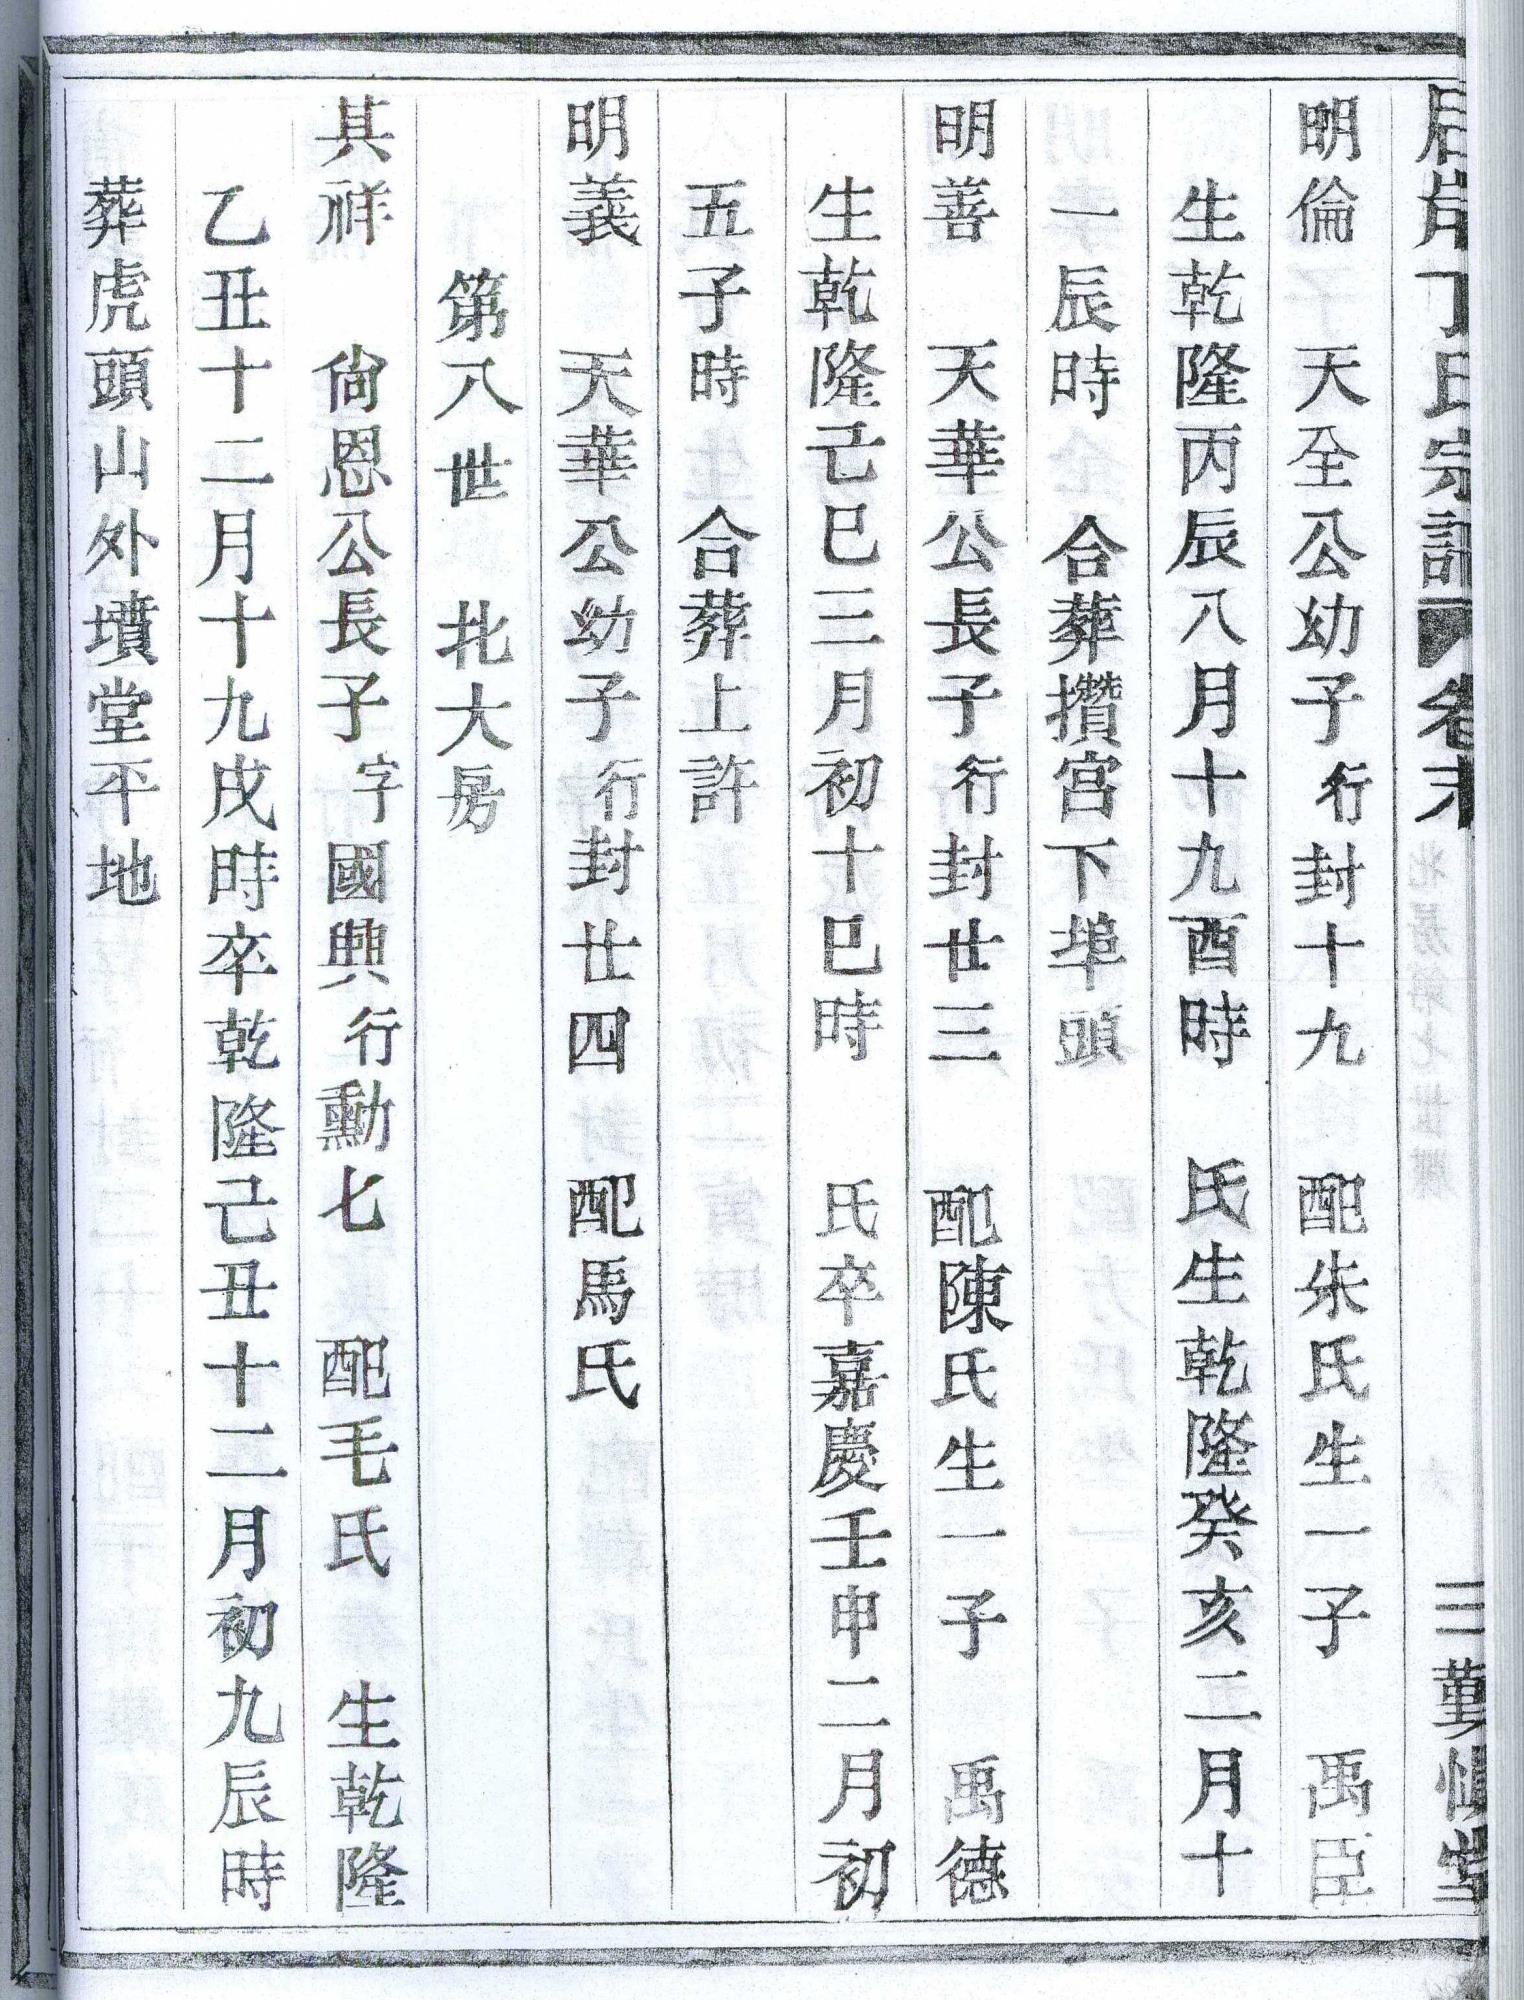 后岸丁氏宗譜 卷末 北房第七世 六 三 堇慎堂
明倫 天全公幼子行封十九 配朱氏生一子 禹臣
生乾隆丙辰八月十九酉時 氏生乾隆癸亥二月十
一辰時 合葬攢宮下埠頭
明善 天華公長子行封廿三 配陳氏生一子 禹德
生乾隆己巳三月初十巳時 氏卒嘉慶壬申二月初
五子時 合葬上許
明義 天華公幼子行封廿四 配馬氏
第八世 北大房
其祥 尙恩公長子字國興行勳七 配毛氏 生乾隆
乙丑十二月十九戌時卒乾隆己丑十二月初九辰時
葬虎頭山外墳堂平地